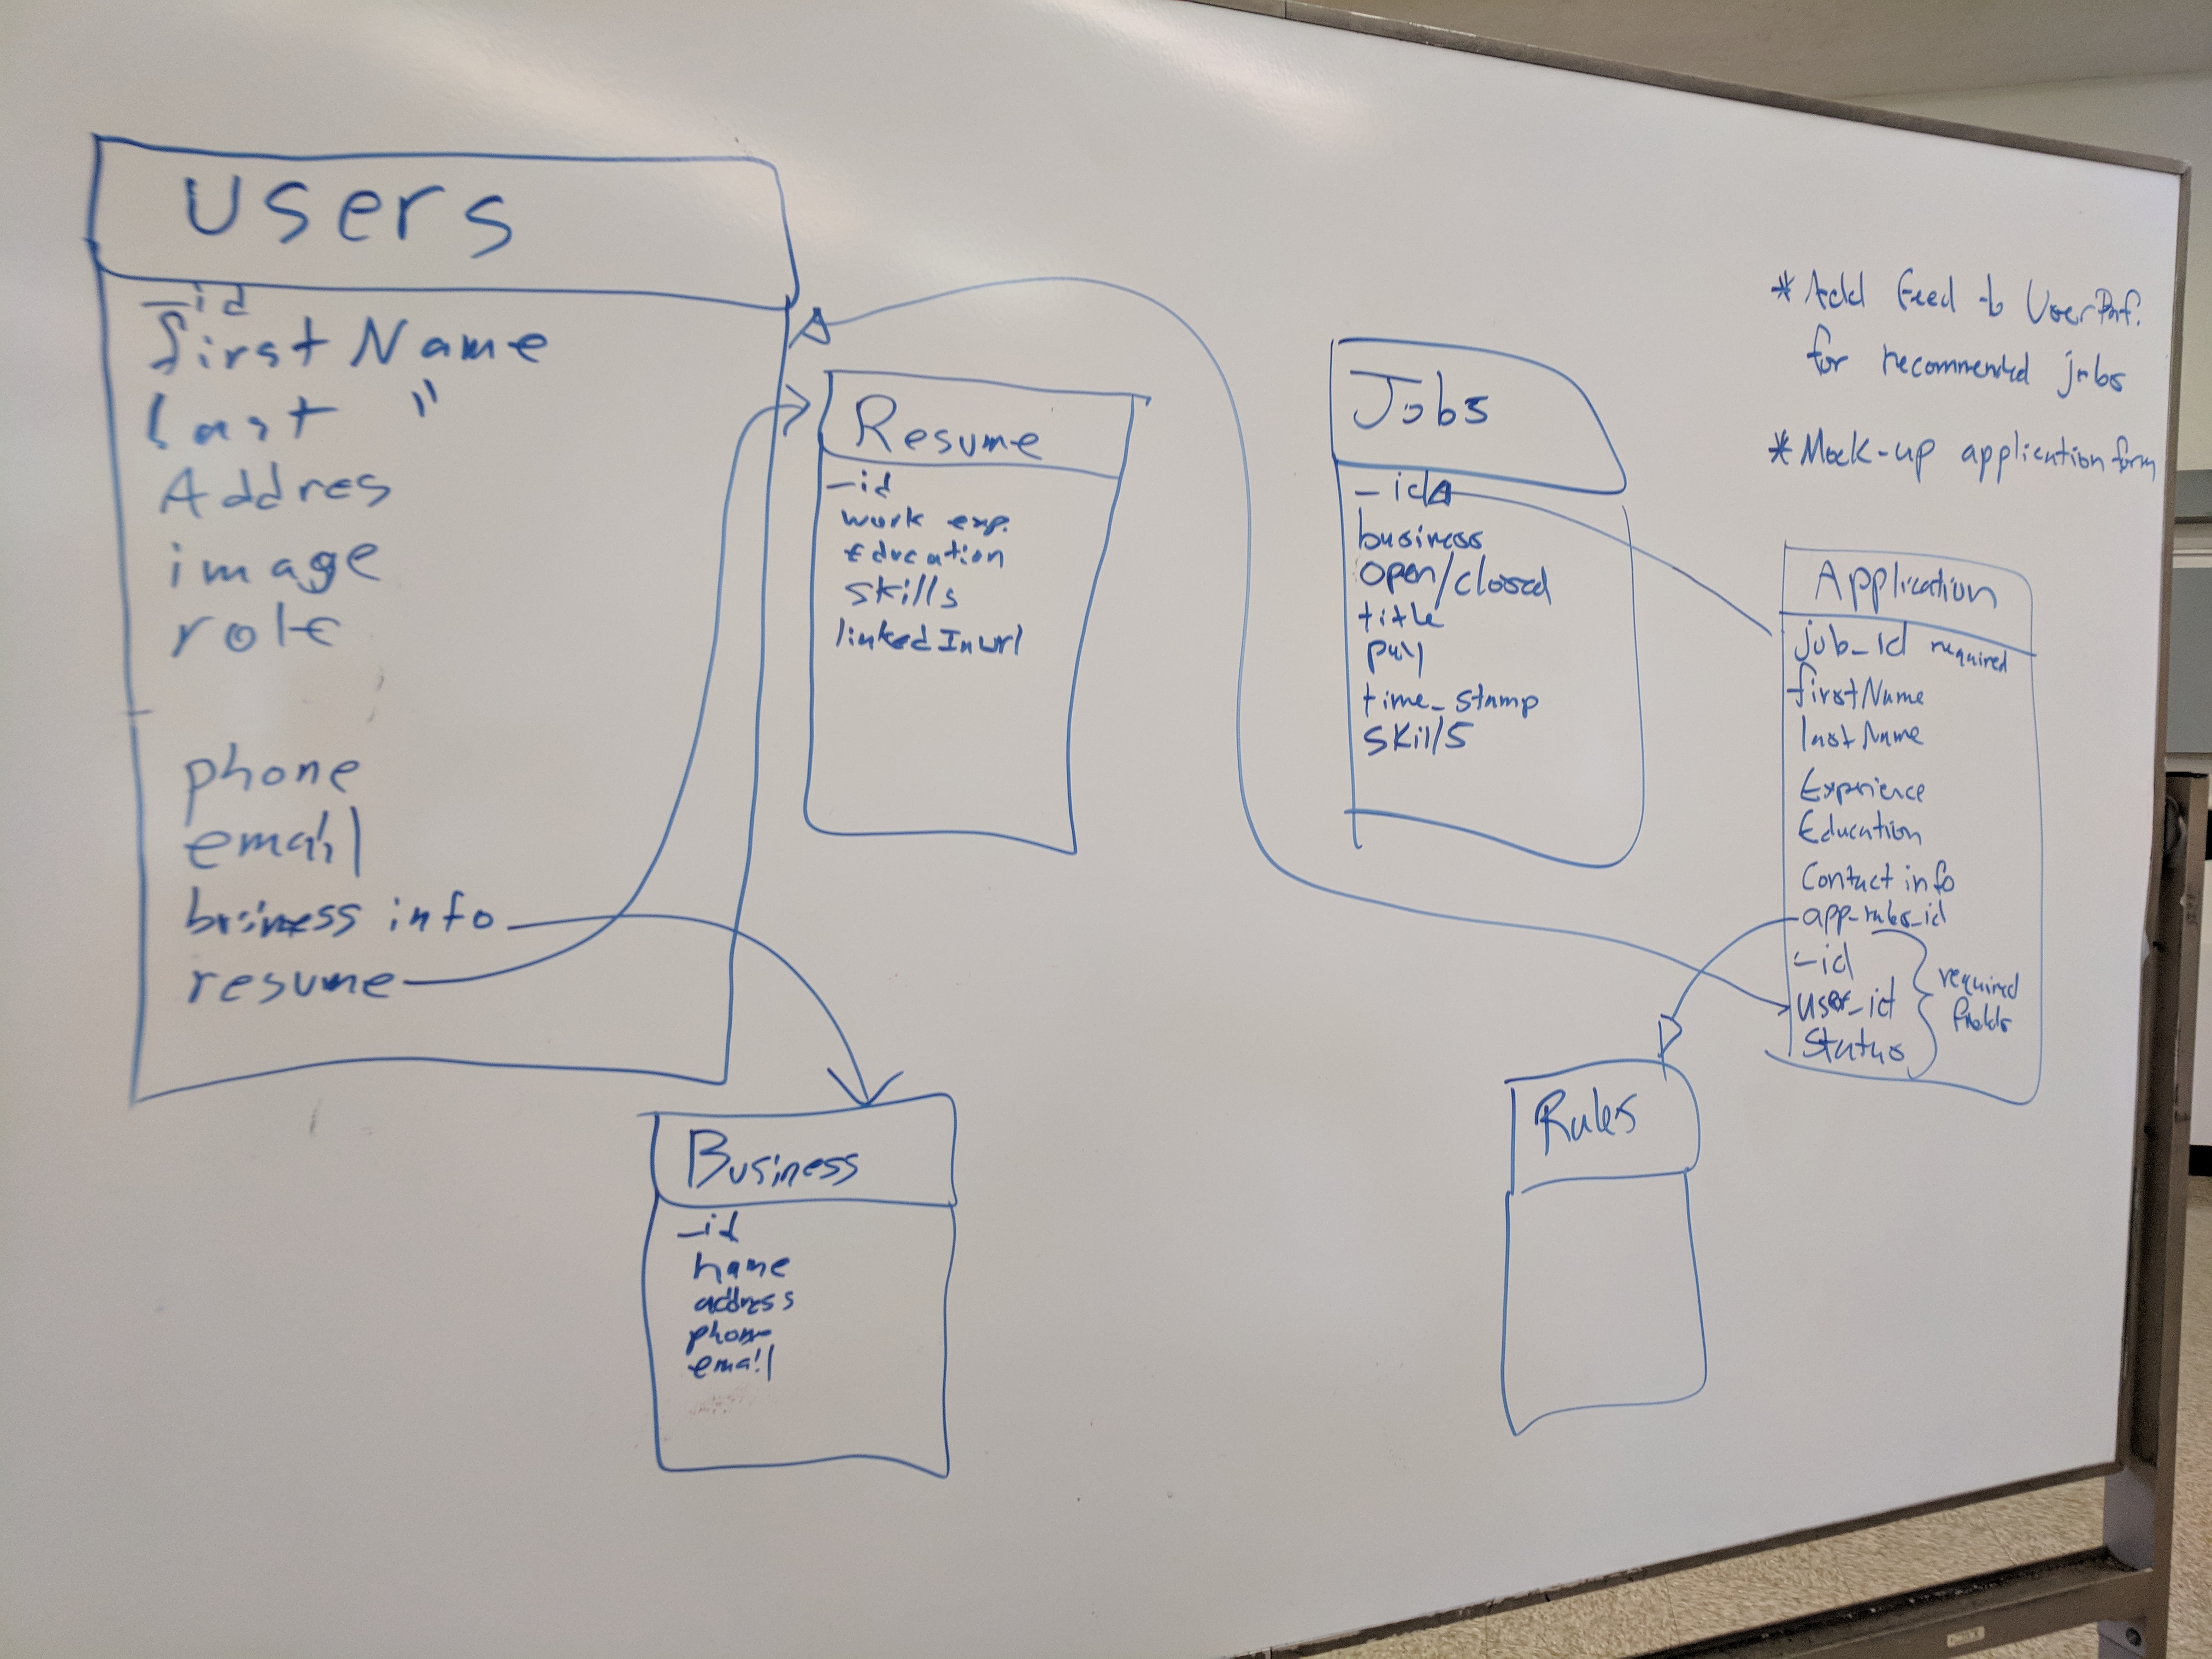 users
_id
first Name
last "
Addres
image
role
phone
email
business info
resume
Resume
_id
work exp.
Education
skills
linkedInurl
Business
_id
name
address
phone
email
Jobs
_id
business
open/closed
title
pay
time_stamp
skills
* Add feed to UserProf.
for recommended jobs
* Mock-up application form
Application
job_id required
firstName
lastName
Experience
Education
Contact info
app_rules_id
_id
user_id
Status
required
fields
Rules